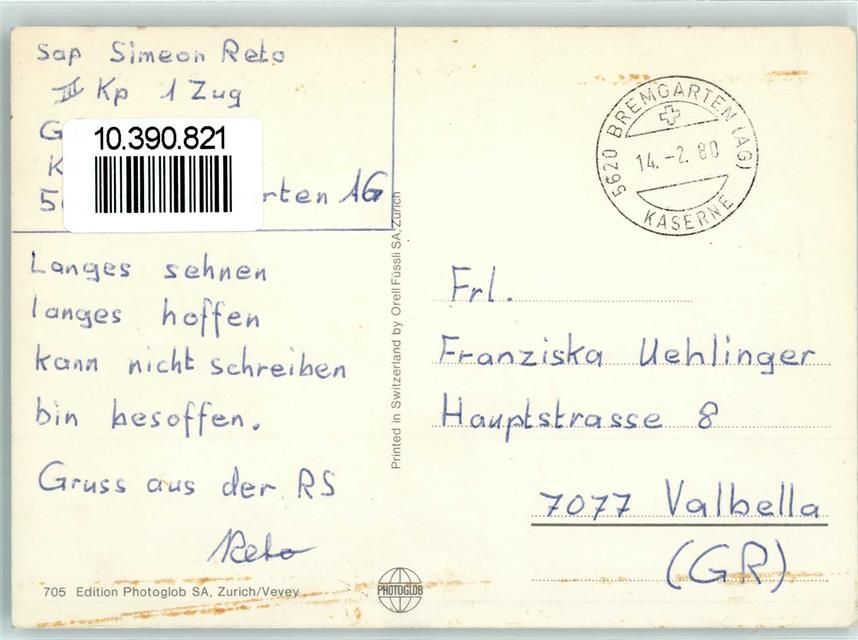 Sap Simeon Reto
III Kp 1 Zug
G
K
5
rten AG
10.390.821
Langes sehnen
langes hoffen
kann nicht schreiben
bin besoffen.
Gruss aus der RS
Reto
705 Edition Photoglob SA, Zurich/Vevey
Printed in Switzerland by Orell Füssli SA, Zurich
PHOTOGLOB
5620 BREMGARTEN (AG)
14.-2.80
KASERNE
Frl.
Franziska Uehlinger
Hauptstrasse 8
7077 Valbella
(GR)